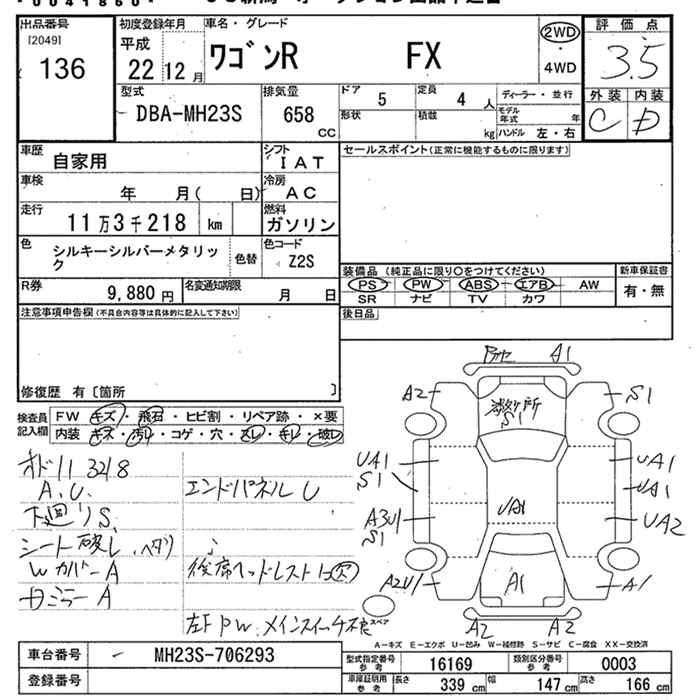 出品番号 初度登録年月 車名・グレード 評価点
[2049] 平成 2WD
136 22 12月 ワゴンR FX ・ 3.5
4WD
型式 排気量 ドア 5 定員 4人 ディーラー・並行 外装 内装
DBA-MH23S 658 cc 形状 積載 kg モデル年式 年 C D
ハンドル 左・右
車歴 自家用 シフト IAT セールスポイント(正常に機能するものに限ります)
車検 年 月( 日) 冷房 AC
走行 11万3千218 km 燃料 ガソリン
色 シルキーシルバーメタリック 色替 色コード Z2S
装備品 (純正品に限り○をつけてください) 新車保証書
R券 9,880円 名変通知期限 月 日 PS PW ABS エアB AW 有・無
SR ナビ TV カワ
注意事項申告欄(不具合内容等は具体的に記入して下さい) 後日品
修復歴 有〔箇所 〕
検査員記入欄 FW キズ・飛石・ヒビ割・リペア跡・×要
内装 キズ・汚レ・コゲ・穴・スレ・キレ・破レ
オド113218
A.U. エンドパネルU
下廻りS
シート破レ、ヘタリ
Wカバー A 後席ヘッドレスト1コ欠
Fミラー A
左F PW メインスイッチ不良
A1
A2 S1
S1
UA1 UA1
S1 UA1
A3U1 UA1 UA2
S1
A2U1 A1 A1
スペア
A2 A2
A-キズ E-エクボ U-凹み W-補修跡 S-サビ C-腐食 XX-交換済
車台番号 - MH23S-706293 型式指定番号 参考 16169 類別区分番号 参考 0003
登録番号 車庫証明用 参考 長さ 339cm 幅 147cm 高さ 166cm